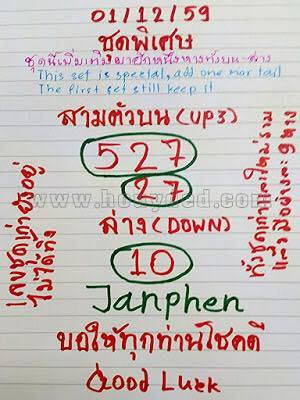 01/12/59
ชุดพิเศษ
ชุดนี้เพิ่มเติมมาอีกหนึ่งหางทั้งบน-ล่าง
This set is special, add one mor tail
The first set still keep it
สามตัวบน (UP3)
527
27
ล่าง (DOWN)
10
Janphen
ขอให้ทุกท่านโชคดี
Good Luck
เลขชุดเก่ายังอยู่
ไม่ได้ทิ้ง